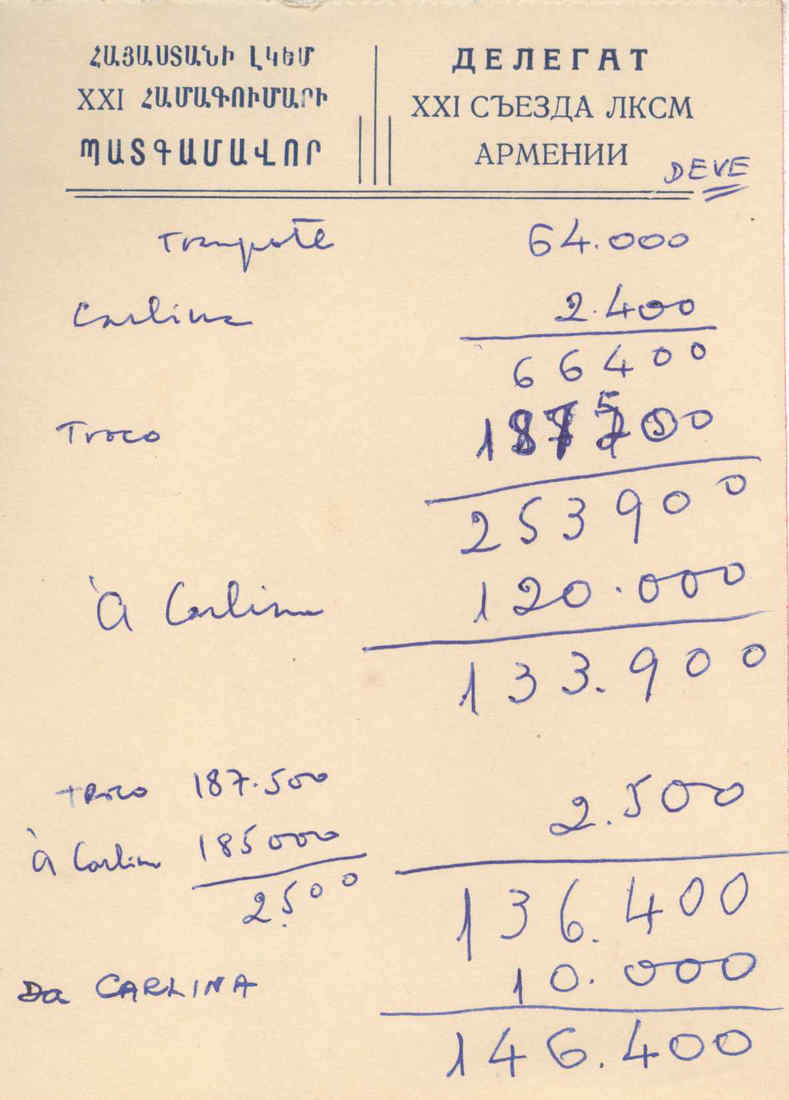 ՀԱՅԱՍՏԱՆԻ ԼԿԵՄ
XXI ՀԱՄԱԳՈՒՄԱՐԻ
ՊԱՏԳԱՄԱՎՈՐ
ДЕЛЕГАТ
XXI СЪЕЗДА ЛКСМ
АРМЕНИИ
DEVE
64.000
Carlina 2.400
66400
Troco 187500
253900
À Carlina 120.000
133.900
troco 187.500 2.500
À Carlina 185000
2.500
136.400
Da CARLINA 10.000
146.400